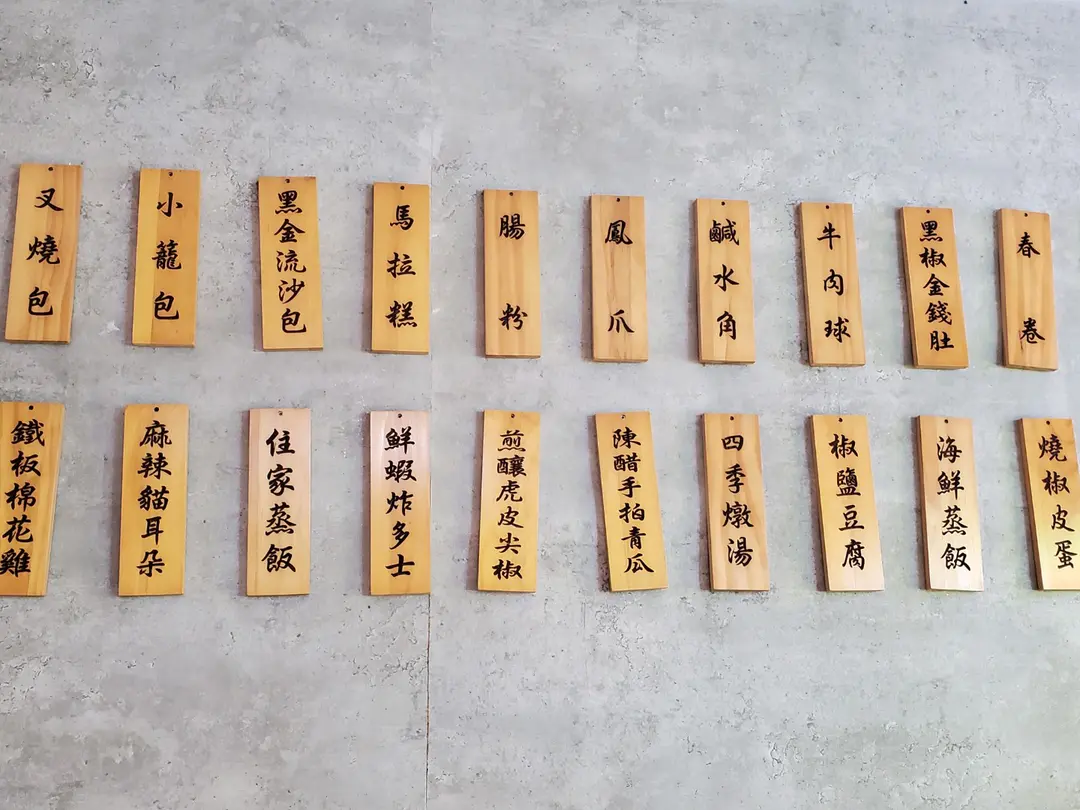 叉燒包
小籠包
黑金流沙包
馬拉糕
腸粉
鳳爪
鹹水角
牛肉球
黑椒金錢肚
春卷
鐵板棉花雞
麻辣貓耳朵
住家蒸飯
鮮蝦炸多士
煎釀虎皮尖椒
陳醋手拍青瓜
四季燉湯
椒鹽豆腐
海鮮蒸飯
燒椒皮蛋